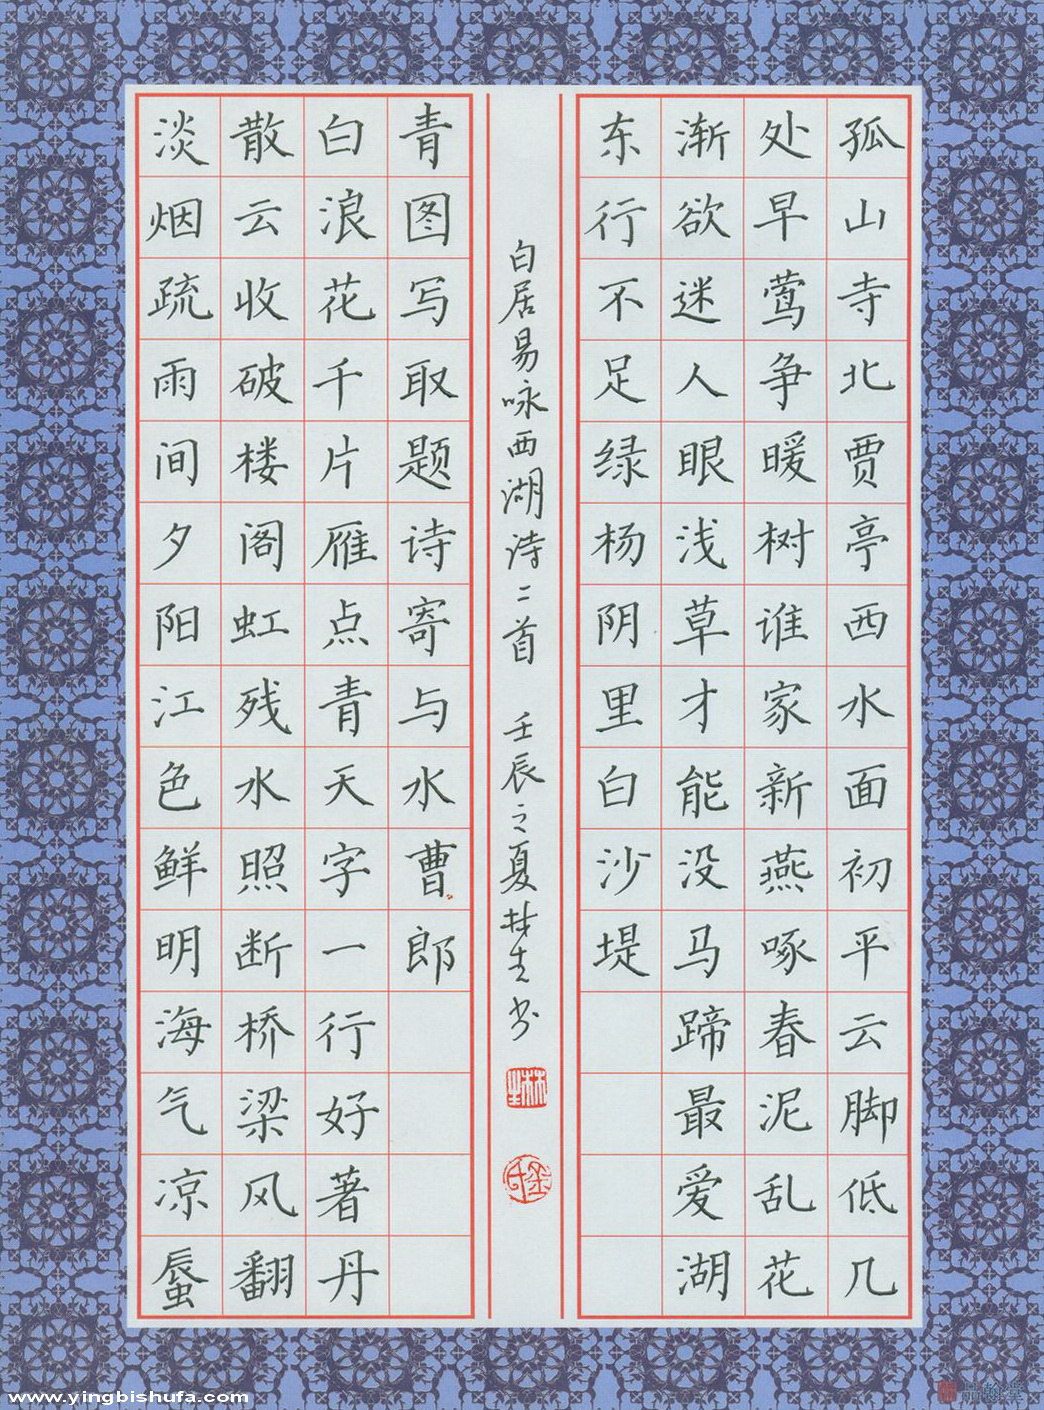 孤山寺北贾亭西水面初平云脚低几
处早莺争暖树谁家新燕啄春泥乱花
渐欲迷人眼浅草才能没马蹄最爱湖
东行不足绿杨阴里白沙堤
淡烟疏雨间夕阳江色鲜明海气凉蜃
散云收破楼阁虹残水照断桥梁风翻
白浪花千片雁点青天字一行好著丹
青图写取题诗寄与水曹郎
白居易咏西湖诗二首 壬辰之夏
www.yingbishufa.com